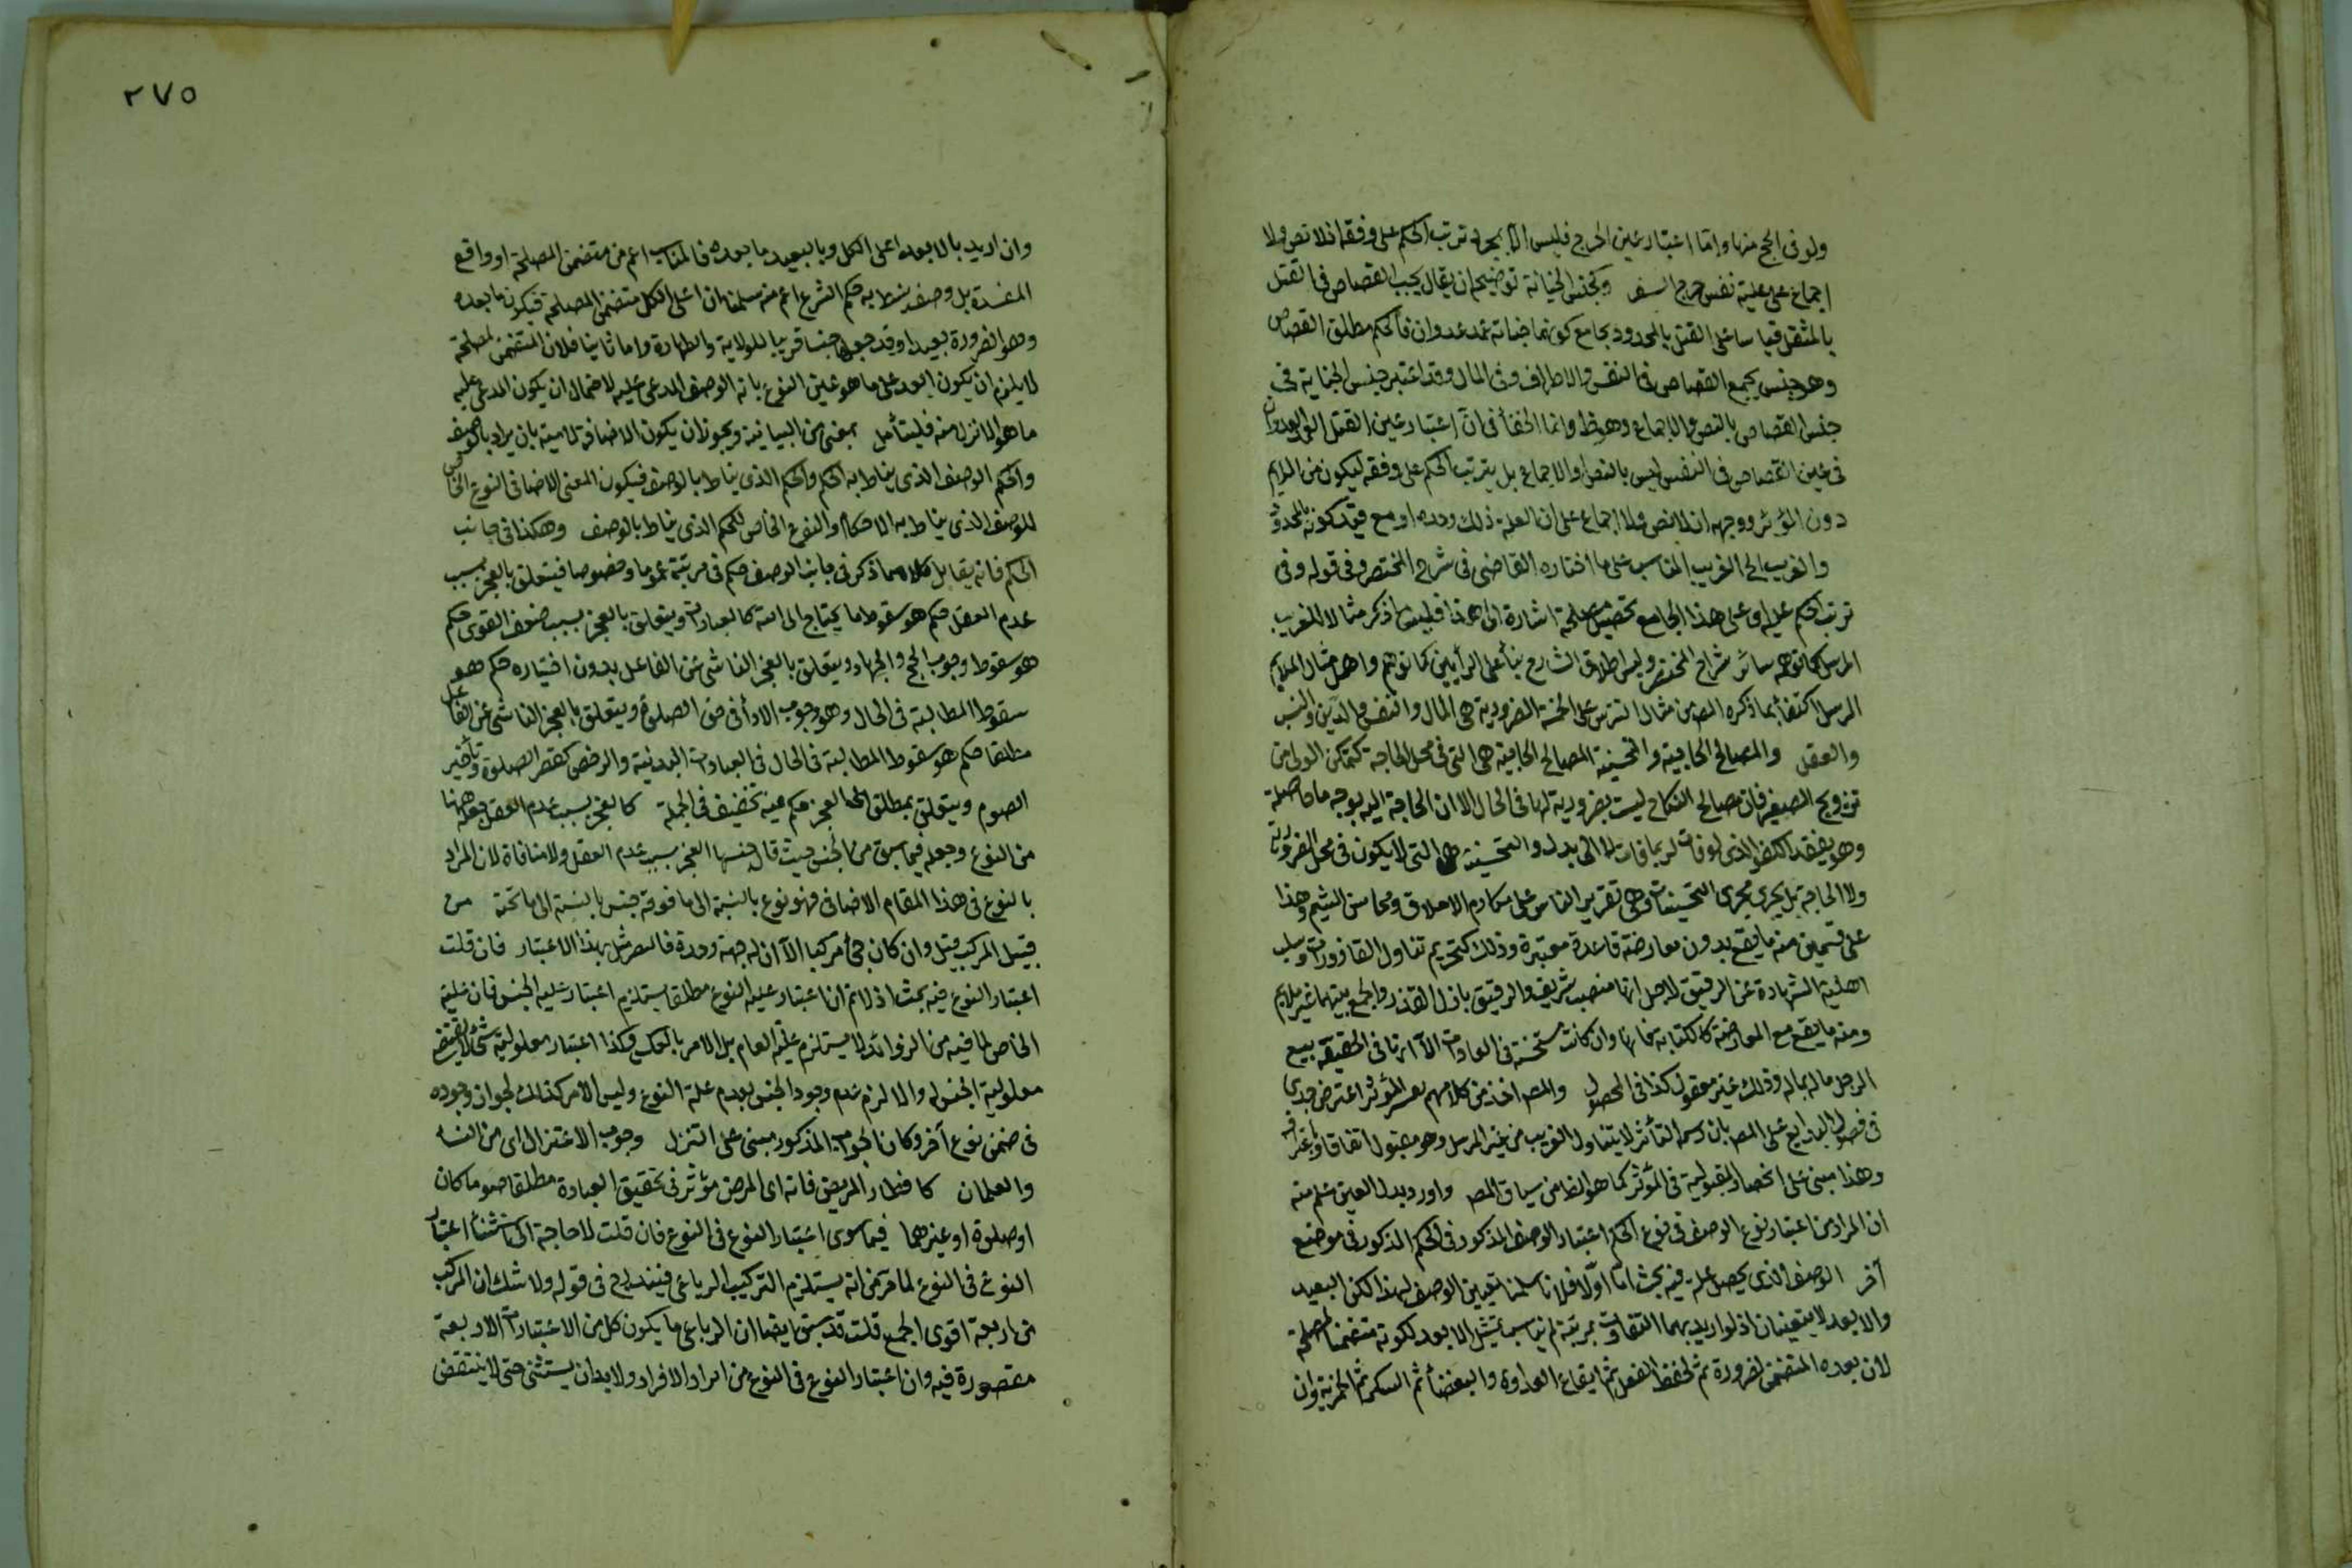 ولو فى الحج منها واما اعتبار عين الحرج فليس الا بمجرد ترتب الحكم على وفقه اذ لا نص ولا
اجماع على علية نفس حرج السفر وكجنس الجناية توضيحه ان يقال يجب القصاص فى القتل
بالمثقل قياسا على القتل بالمحدود بجامع كونهما جناية عمد عدوان فالحكم مطلق القصاص
وهو جنس يجمع القصاص فى النفس والاطراف وفى المال وقد اعتبر جنس الجناية فى
جنس القصاص بالنص والاجماع وهو ظ وانما الخفأ فى ان اعتبار عين القتل العمد العدوان
فى عين القصاص فى النفس ليس بالنص او الاجماع بل بترتب الحكم على وفقه ليكون من الملايم
دون المؤثر ووجهه ان لا نص ولا اجماع على ان العلة ذلك وحده او مع قيد كونه بالمحدود
والغريب الخ الغريب المناسب على ما اختاره القاضى فى شرح المختصر وفى قوله وفى
ترتب الحكم عليه وعلى هذا الجامع تحصيل مصلحة اشارة الى هذا فليس ما ذكر مثالا للغريب
المرسل كما توهمه سائر شراح المختصر وليس اطلاق الشارع بنأ على الرأيين كما توهم واهمل مثال الملايم
المرسل اكتفأ بما ذكره المص من مثال الترس على الخمسة الضرورية هى المال والنفس والدين والنسب
والعقل والمصالح الحاجية والتحسينية المصالح الحاجية هى التى فى محل الحاجة كتمكن الولى من
تزويج الصغير فان مصالح النكاح ليست بضرورية لها فى الحال الا ان الحاجة اليه بوجه ما حاصلة
وهو تقييد الكفو الذى لو فات لربما فات لا الى بدل والتحسينية هى التى لا يكون فى محل الضرورة
ولا الحاجة بل يجرى مجرى التحسينات وهى تقرير الناس على مكارم الاخلاق ومحاسن الشيم وهذا
على قسمين منه ما يقع بدون معارضة قاعدة معتبرة وذلك كتحريم تناول القاذورات وسلب
اهلية الشهادة عن الرقيق لاجل انها منصب شريف والرقيق نازل القدر والجمع بينهما غير ملايم
ومنه ما يقع مع المعارضة كالكتابة فانها وان كانت مستحسنة فى العادات الا انها فى الحقيقة بيع
الرجل ماله بماله وذلك غير معقول كذا فى المحصول والمص اخذ من كلامهم تفسير المؤثر اعترض جدى
فى فصول البدايع على المص بان رسمه التأثير لا يتناول الغريب من غير المرسل وهو مقبول اتفاقا واعترافه
وهذا مبنى على انحصار المقبولية فى المؤثر كما هو الظ من سياق المص واورد بدل العين علم منه
ان المراد من اعتبار نوع الوصف فى نوع الحكم اعتبار الوصف المذكور فى الحكم المذكور فى موضع
آخر الوصف الذى يحصل علة فيه بحث اما اولا فلانا سلمنا تعيين الوصف لهذا لكن البعيد
والابعد لا يتعينان اذ لو اريد بهما التفاوت بمرتبة لم يناسب تمثيل الابعد لكونه متضمنا لمصلحة
لان بعده المتضمن لضرورة ثم لحفظ العقل ثم ايقاع العداوة والبغضأ ثم السكر ثم الخمرية وان
٢٧٥
وان اريد بالابعد اعلى الكل وبالبعيد ما بعده فالمناسب اعم من متضمن المصلحة او واقع
المفسدة بل وصف نيط به حكم الشرع اعم منه سلمنا ان اعلى الكل متضمن المصلحة فيكون ما بعده
وهو الضرورة بعيدا وقد جعلها جنسا قريبا للولاية والطهارة واما ثانيا فلان المتضمن لمصلحة
لا يلزم ان يكون ابعد على ما هو عين النوع بانه الوصف المدعى عليه لاحتمال ان يكون المدعى عليه
ما هو انزل منه فليتأمل بمعنى من البيانية ويجوز ان يكون الاضافة لامية بان يراد بالوصف
والحكم الوصف الذى يناط به الحكم والحكم الذى يناط بالوصف فيكون المعنى الاضافى النوع الخاص
للوصف الذى يناط به الاحكام والنوع الخاص للحكم الذى يناط بالوصف وهكذا فى جانب
الحكم فانه يقابل كلا مما ذكر فى جانب الوصف حكم فى مرتبة عموما وخصوصا فيتعلق بالعجز بسبب
عدم العقل حكم هو سقوط ما يحتاج الى النية كالعبادات ويتعلق بالعجز بسبب ضعف القوى حكم
هو سقوط وجوب الحج والجهاد ويتعلق بالعجز الناشى عن الفاعل بدون اختياره حكم هو
سقوط المطالبة فى الحال وهو وجوب الادأ فى حق الصلوة ويتعلق بالعجز الناشى عن الفاعل
مطلقا حكم هو سقوط المطالبة فى الحال فى العبادات البدنية والرخص كقصر الصلوة وتأخير
الصوم ويتعلق بمطلق العجز حكم فيه تخفيف فى الجملة كالعجز بسبب عدم العقل جعله ههنا
من النوع وجعله فيما سبق من الجنس حيث قال جنسها العجز بسبب عدم العقل ولا منافاة لان المراد
بالنوع فى هذا المقام الاضافى فهو نوع بالنسبة الى ما فوقه جنس بالنسبة الى ما تحته من
قبيل المركب قيل وان كان مركبا الا ان له جهة وحدة فالتمثيل بهذا الاعتبار فان قلت
اعتبار النوع فيه بحث اذ لا نم ان اعتبار علية النوع مطلقا يستلزم اعتبار علية الجنس فان علية
الخاص لما فيه من الزوائد لا يستلزم علية العام بل الامر بالعكس وكذا اعتبار معلولية شئ لا يقتضى
معلولية الجنس له والا لزم عدم وجود الجنس بعدم علة النوع وليس الامر كذلك لجواز وجوده
فى ضمن نوع آخر وكان الجواب المذكور مبنى على التنزل وجوب الاعتزال اى من النسأ
والعلمان كافطار المريض فانه اى المرض مؤثر فى تحقيق العبادة مطلقا صوما كان
او صلوة او غيرهما فيما سوى اعتبار النوع فى النوع فان قلت لا حاجة الى استثنأ اعتبار
النوع فى النوع لما مر من انه يستلزم التركيب الرباعى فيندرج فى قوله ولا شك ان المركب
من اربعة اقوى الجمع قلت قد سبق ايضا ان الرباعى ما يكون كل من الاعتبارات الاربعة
مقصورة فيه وان اعتبار النوع فى النوع من افراد الافراد ولا بد ان يستثنى حتى لا ينتقض